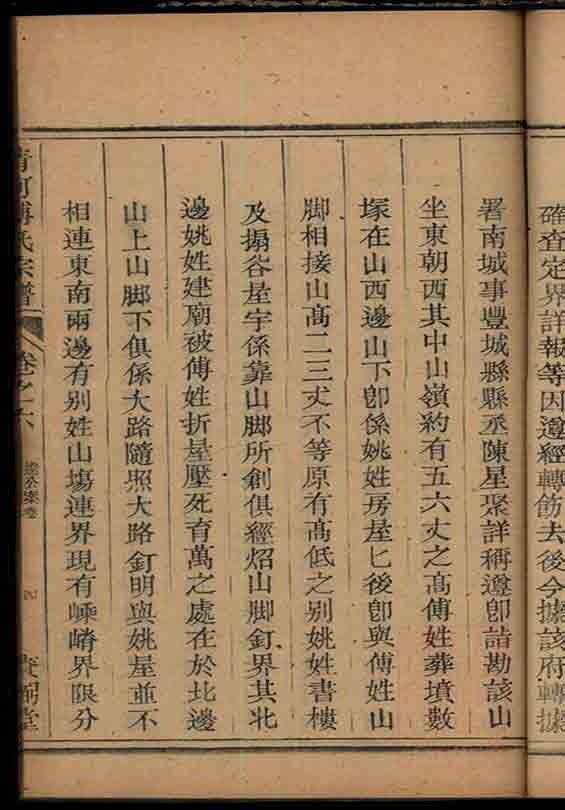 確查定界詳報等因遵經轉飭去後今據該府轉據
署南城事豐城縣縣丞陳星聚詳稱遵卽詣勘該山
坐東朝西其中山嶺約有五六丈之高傅姓葬墳數
塚在山西邊山下卽係姚姓房屋匕後卽與傅姓山
脚相接山髙二三丈不等原有髙低之别姚姓書樓
及搨谷屋宇係靠山脚所創俱經炤山脚釘界其北
邊姚姓建廟被傅姓折屋壓死育萬之處在於北邊
山上山脚下俱係大路隨照大路釘明與姚屋並不
相連東南兩邊有别姓山塲連界現有嵊嵴界限分
清河傅氏宗譜
卷之六
四